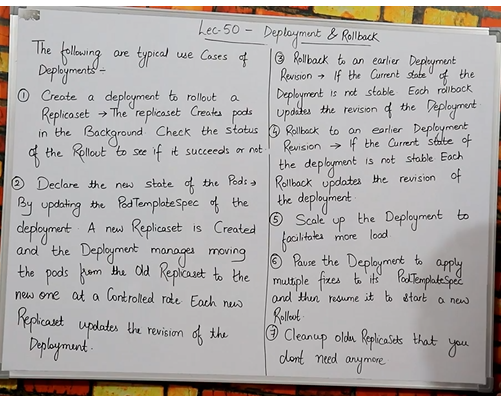 Lec-50 - Deployment & Rollback
The following are typical use Cases of
Deployments -
① Create a deployment to rollout a
Replicaset → The replicaset Creates pods
in the Background. Check the status
of the Rollout to see if it succeeds or not
② Declare the new state of the Pods →
By updating the PodTemplateSpec of the
deployment. A new Replicaset is Created
and the Deployment manages moving
the pods from the Old Replicaset to the
new one at a Controlled rate Each new
Replicaset updates the revision of the
Deployment.
③ Rollback to an earlier Deployment
Revision → If the Current state of the
Deployment is not stable Each rollback
updates the revision of the Deployment
④ Rollback to an earlier Deployment
Revision → If the Current state of
the deployment is not stable Each
Rollback updates the revision of
the deployment.
⑤ Scale up the Deployment to
facilitates more load.
⑥ Pause the Deployment to apply
multiple fixes to its PodTemplateSpec
and then resume it to start a new
Rollout.
⑦ Cleanup older ReplicaSets that you
dont need anymore